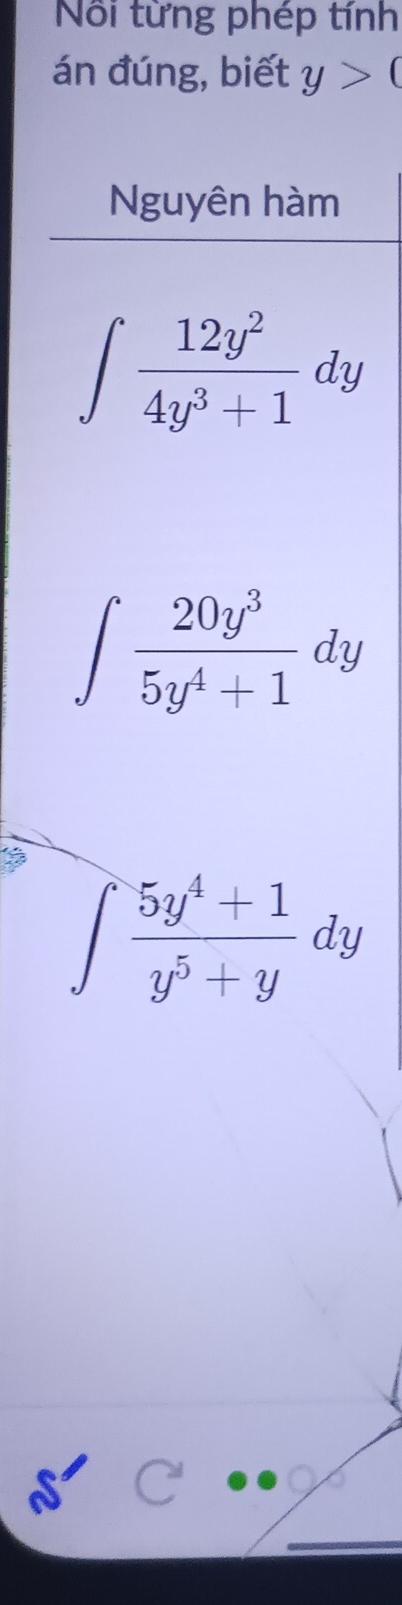 Nối từng phép tính
án đúng, biết y > 0
Nguyên hàm
∫ 12y² / (4y³ + 1) dy
∫ 20y³ / (5y⁴ + 1) dy
∫ (5y⁴ + 1) / (y⁵ + y) dy